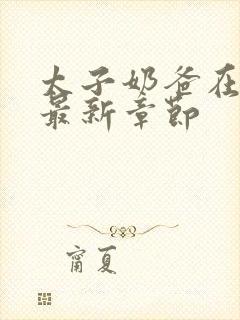 太子奶爸在
最新章节
甯夏